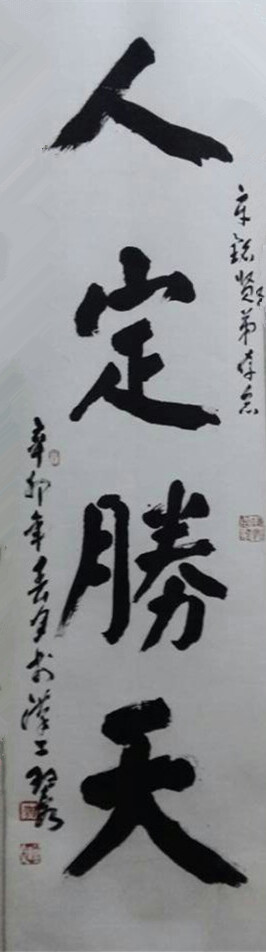 銘賢弟存念
人定勝天
辛卯年春月於漢